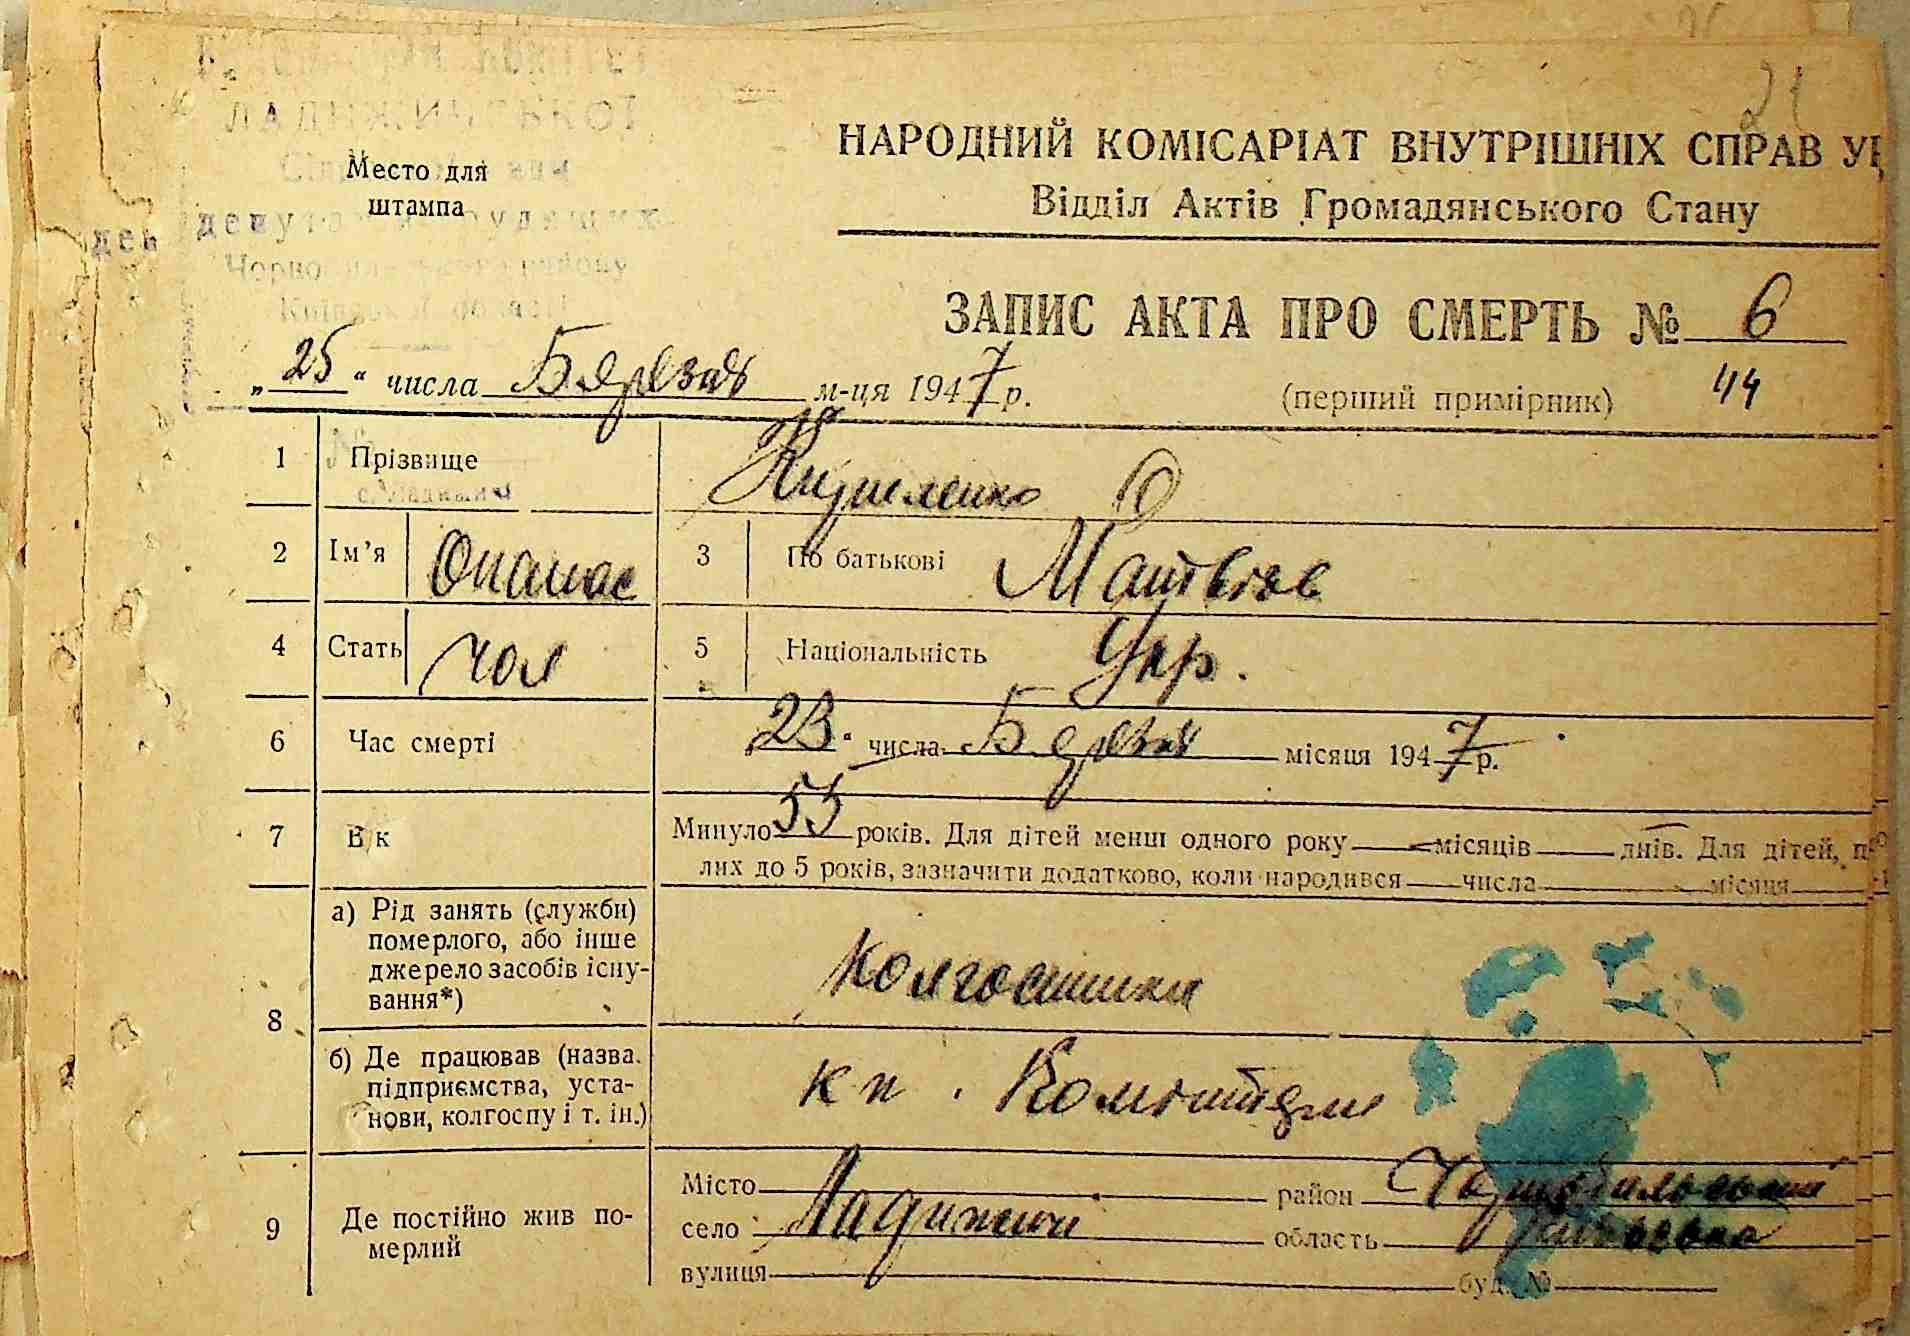 21
ЛАДИЖИЧСЬКОЇ
Место для
штампа
депутатів трудящих
Чорнобильського району
Київської області
НАРОДНИЙ КОМІСАРІАТ ВНУТРІШНІХ СПРАВ УР
Відділ Актів Громадянського Стану
ЗАПИС АКТА ПРО СМЕРТЬ № 6
„25“ числа Березня м-ця 1947 р.
(перший примірник) 44
1 Прізвище
2 Ім’я Опанас 3 По батькові Матвієв
4 Стать чол 5 Національність Укр.
6 Час смерті 23 числа Березня місяця 1947 р.
7 В к Минуло 55 років. Для дітей менш одного року — місяців — днів. Для дітей, п
лих до 5 років, зазначити додатково, коли народився — числа — місяця
8 а) Рід занять (служби)
померлого, або інше
джерело засобів існу-
вання*) Колгоспник
б) Де працював (назва
підприємства, уста-
нови, колгоспу і т. ін.) кп. Комінтерн
9 Де постійно жив по-
мерлий
Місто район Чорнобильський
село Ладижичі область Київська
вулиця буд. №